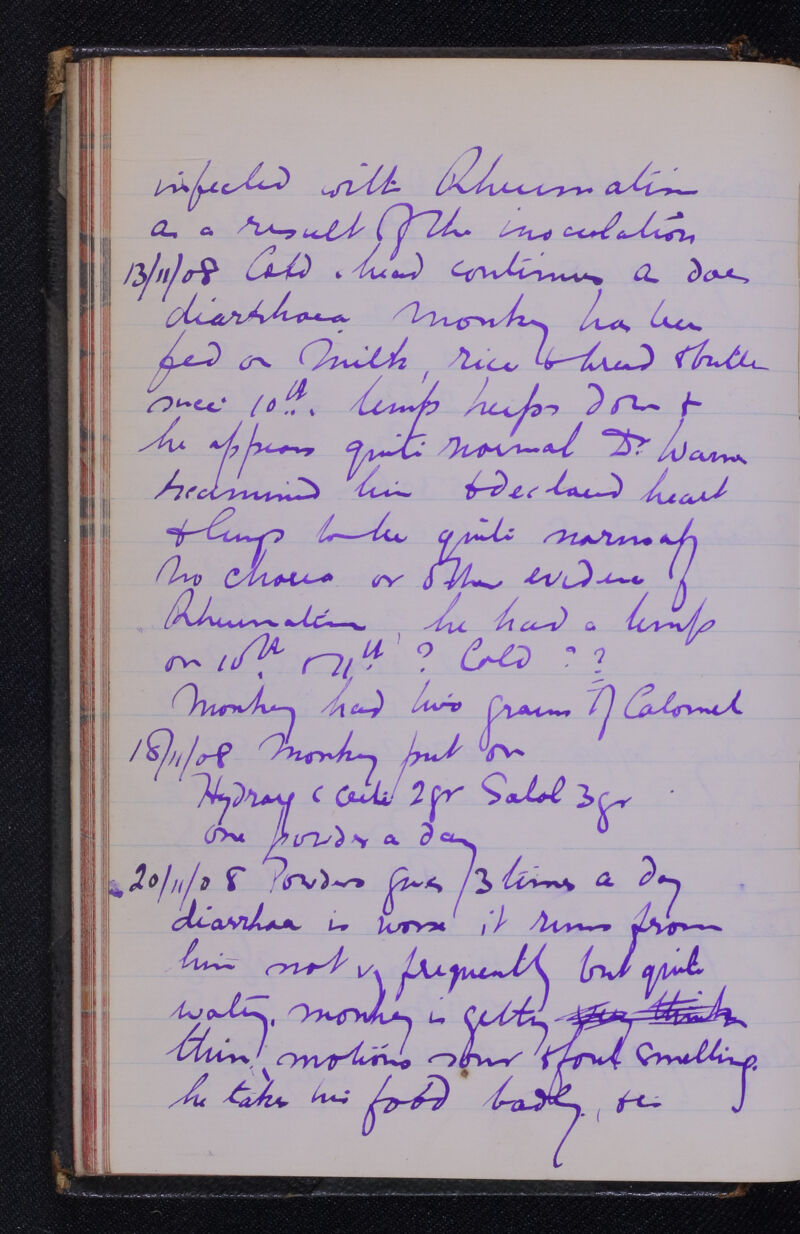 infected with Rheumatism
as a result of the inoculation
13/11/08 Cold . head continues as does
diarrhoea Monkey has been
fed on Milk, rice & bread & butter
since 10th. temp keeps down &
he appears quite normal Dr Warner
examined him & declared heart
& lungs to be quite normal
No chorea or other evidence of
Rheumatism, he had a temp
on 10th or 11th ? Cold ? ?
Monkey had two grains of Calomel
18/11/08 Monkey put on
Hydrarg c creta 2gr Salol 3gr
one powder a day
20/11/08 Powders given 3 times a day
diarrhoea is worse it runs from
him not vy frequently but quite
watery. Monkey is getting very thin
thin, motions sour & foul smelling.
he takes his food badly, &